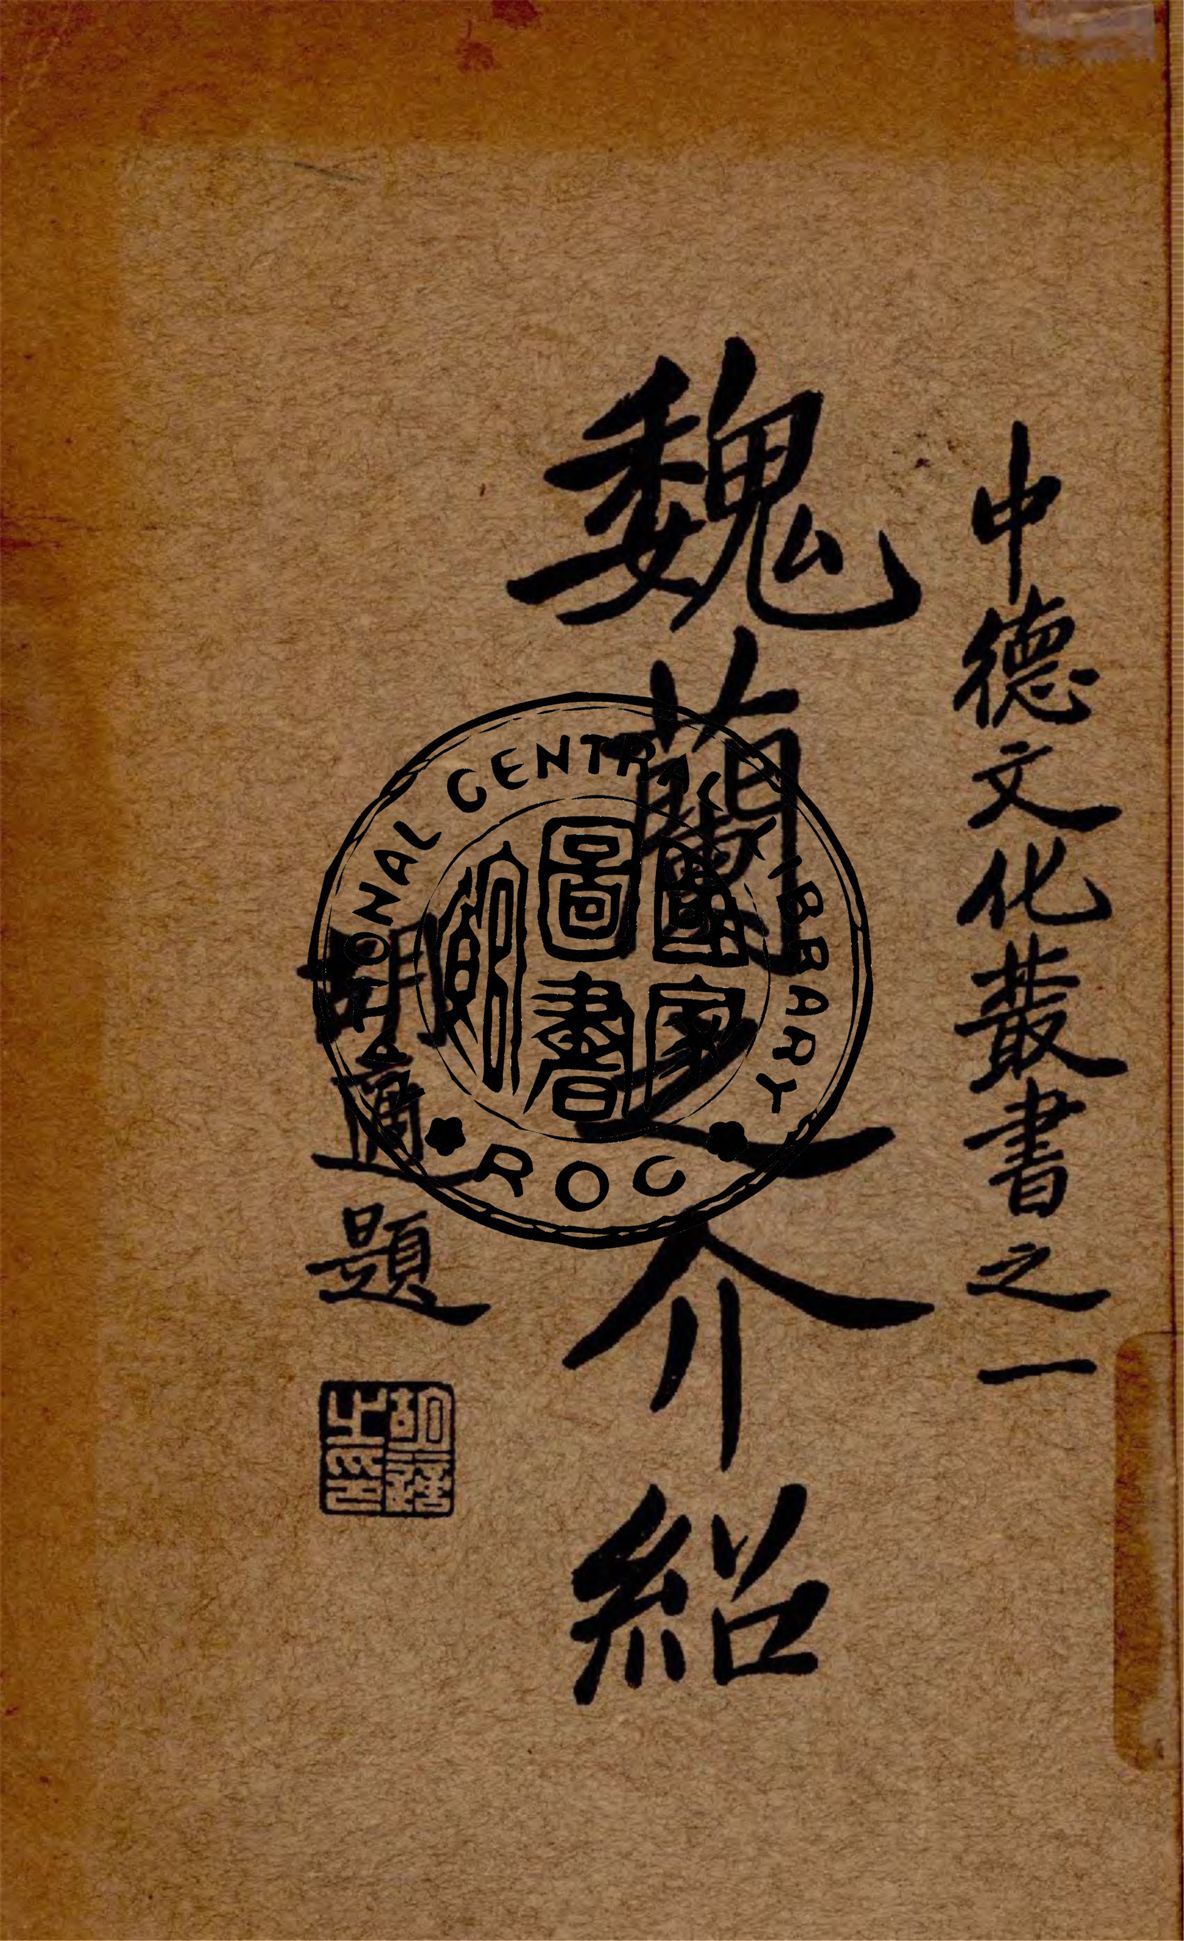 中德文化叢書之一
魏蘭之介紹
胡適題
胡適之印
NATIONAL CENTRAL LIBRARY
國家圖書館
ROC